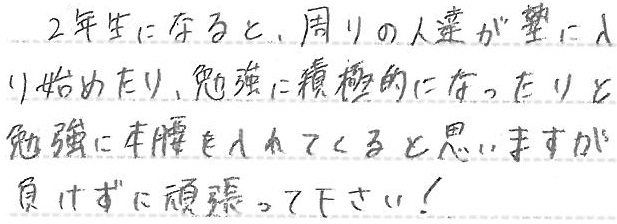 2年生になると、周りの人達が塾に入
り始めたり、勉強に積極的になったりと
勉強に本腰を入れてくると思いますが
負けずに頑張って下さい！